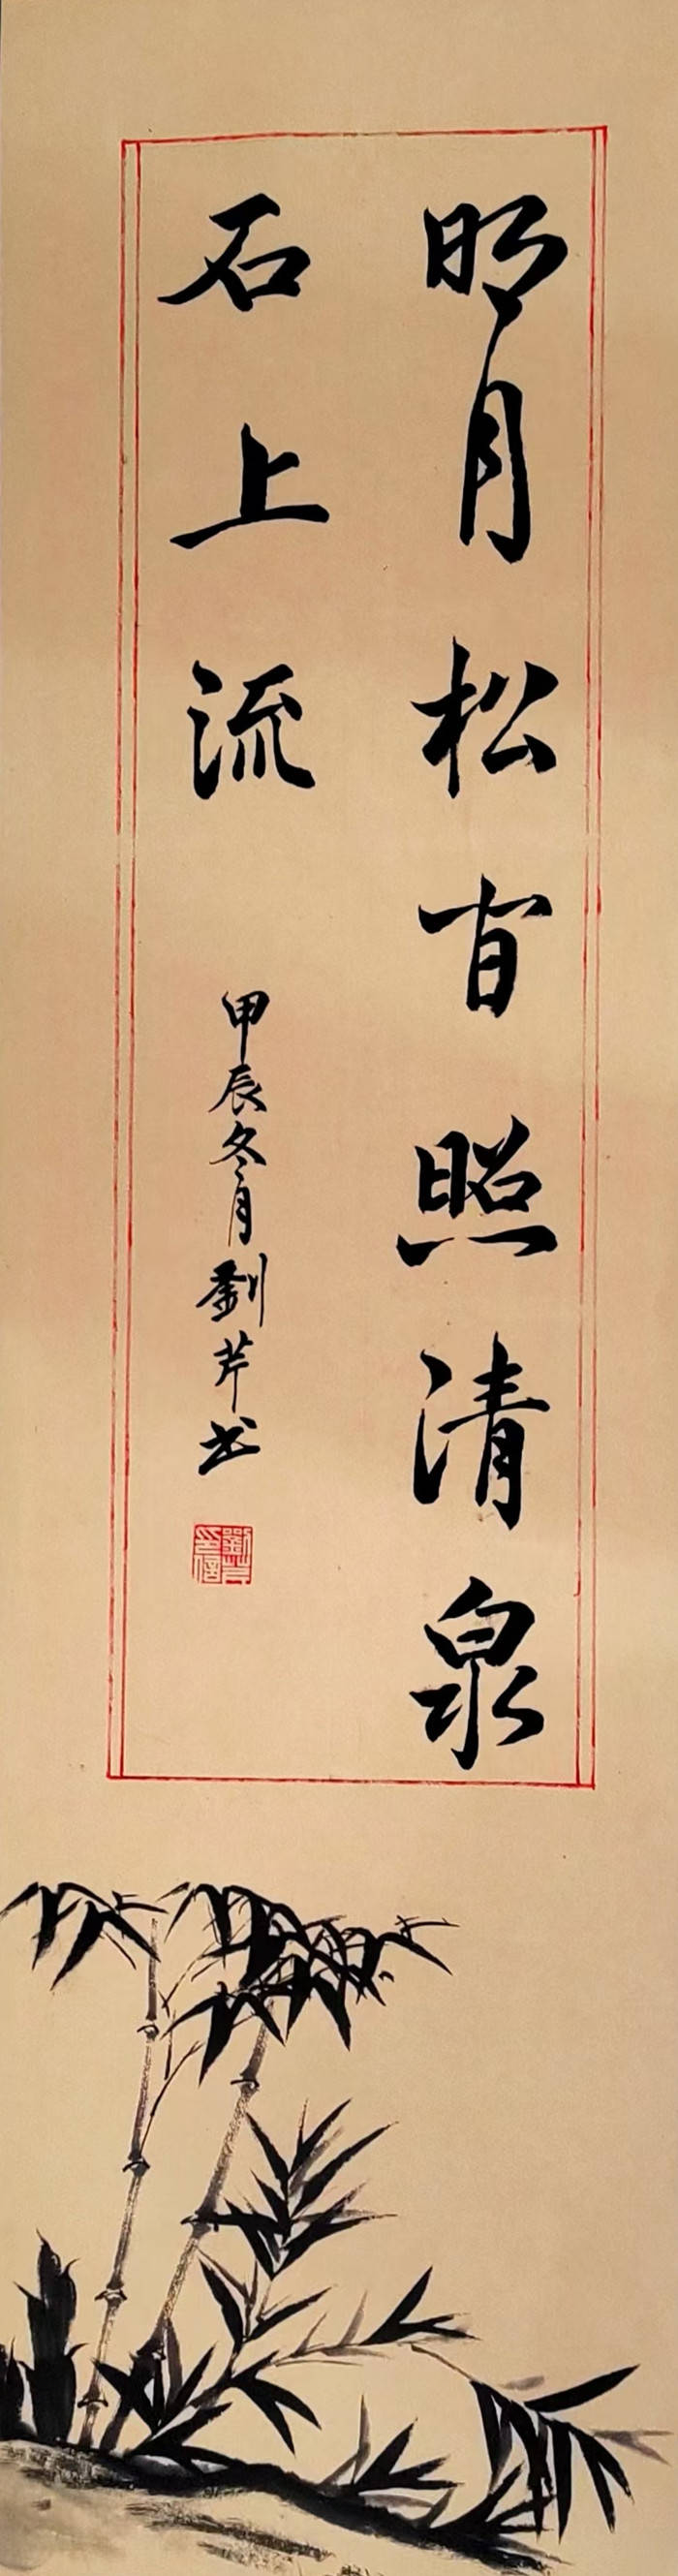 明月松间照清泉
石上流
甲辰冬月劉芹书
劉芹印信